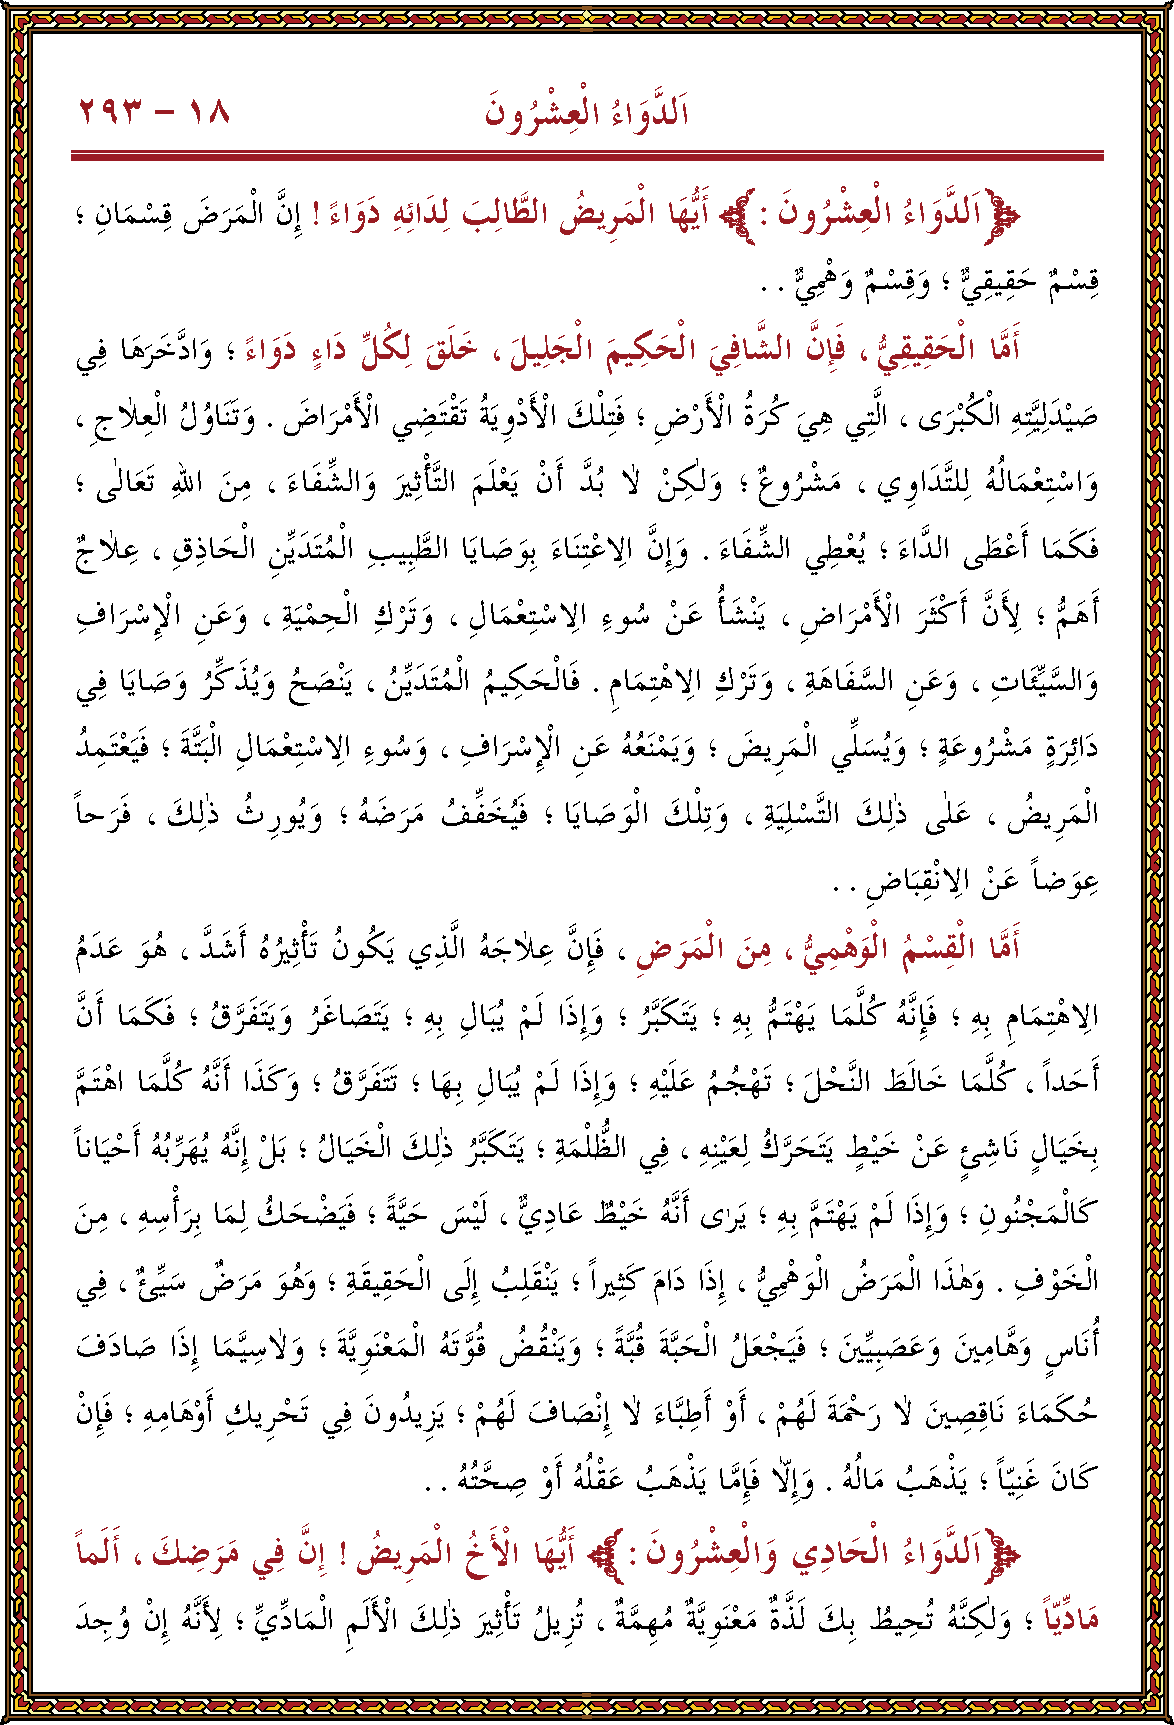 اَلدَّوَاءُ الْعِشْرُونَ ١٨ – ٢٩٣
﴿اَلدَّوَاءُ الْعِشْرُونَ : ﴾ أَيُّهَا الْمَرِيضُ الطَّالِبَ لِدَائِهِ دَوَاءً ! إِنَّ الْمَرَضَ قِسْمَانِ ؛
قِسْمٌ حَقِيقِيٌّ ؛ وَقِسْمٌ وَهْمِيٌّ . .
أَمَّا الْحَقِيقِيُّ ، فَإِنَّ الشَّافِيَ الْحَكِيمَ الْجَلِيلَ ، خَلَقَ لِكُلِّ دَاءٍ دَوَاءً ؛ وَادَّخَرَهَا فِي
صَيْدَلِيَّتِهِ الْكُبْرَى ، الَّتِي هِيَ كُرَةُ الْأَرْضِ ؛ فَتِلْكَ الْأَدْوِيَةُ تَقْتَضِي الْأَمْرَاضَ . وَتَنَاوُلُ الْعِلَاجِ ،
وَاسْتِعْمَالُهُ لِلتَّدَاوِي ، مَشْرُوعٌ ؛ وَلٰكِنْ لَا بُدَّ أَنْ يَعْلَمَ التَّأْثِيرَ وَالشِّفَاءَ ، مِنَ اللهِ تَعَالٰى ؛
فَكَمَا أَعْطَى الدَّاءَ ؛ يُعْطِي الشِّفَاءَ . وَإِنَّ الِاعْتِنَاءَ بِوَصَايَا الطَّبِيبِ الْمُتَدَيِّنِ الْحَاذِقِ ، عِلَاجٌ
أَهَمُّ ؛ لِأَنَّ أَكْثَرَ الْأَمْرَاضِ ، يَنْشَأُ عَنْ سُوءِ الِاسْتِعْمَالِ ، وَتَرْكِ الْحِمْيَةِ ، وَعَنِ الْإِسْرَافِ
وَالسَّيِّئَاتِ ، وَعَنِ السَّفَاهَةِ ، وَتَرْكِ الِاهْتِمَامِ . فَالْحَكِيمُ الْمُتَدَيِّنُ ، يَنْصَحُ وَيُذَكِّرُ وَصَايَا فِي
دَائِرَةٍ مَشْرُوعَةٍ ؛ وَيُسَلِّي الْمَرِيضَ ؛ وَيَمْنَعُهُ عَنِ الْإِسْرَافِ ، وَسُوءِ الِاسْتِعْمَالِ الْبَتَّةَ ؛ فَيَعْتَمِدُ
الْمَرِيضُ ، عَلٰى ذٰلِكَ التَّسْلِيَةِ ، وَتِلْكَ الْوَصَايَا ؛ فَيُخَفِّفُ مَرَضَهُ ؛ وَيُورِثُ ذٰلِكَ ، فَرَحاً
عِوَضاً عَنْ الِانْقِبَاضِ . .
أَمَّا الْقِسْمُ الْوَهْمِيُّ ، مِنَ الْمَرَضِ ، فَإِنَّ عِلَاجَهُ الَّذِي يَكُونُ تَأْثِيرُهُ أَشَدَّ ، هُوَ عَدَمُ
الِاهْتِمَامِ بِهِ ؛ فَإِنَّهُ كُلَّمَا يَهْتَمُّ بِهِ ؛ يَتَكَبَّرُ ؛ وَإِذَا لَمْ يُبَالِ بِهِ ؛ يَتَصَاغَرُ وَيَتَفَرَّقُ ؛ فَكَمَا أَنَّ
أَحَداً ، كُلَّمَا خَالَطَ النَّحْلَ ؛ تَهْجُمُ عَلَيْهِ ؛ وَإِذَا لَمْ يُبَالِ بِهَا ؛ تَتَفَرَّقُ ؛ وَكَذَا أَنَّهُ كُلَّمَا اهْتَمَّ
بِخَيَالٍ نَاشِئٍ عَنْ خَيْطٍ يَتَحَرَّكُ لِعَيْنِهِ ، فِي الظُّلْمَةِ ؛ يَتَكَبَّرُ ذٰلِكَ الْخَيَالُ ؛ بَلْ إِنَّهُ يُهَرِّبُهُ أَحْيَاناً
كَالْمَجْنُونِ ؛ وَإِذَا لَمْ يَهْتَمَّ بِهِ ؛ يَرٰى أَنَّهُ خَيْطٌ عَادِيٌّ ، لَيْسَ حَيَّةً ؛ فَيَضْحَكُ لِمَا بِرَأْسِهِ ، مِنَ
الْخَوْفِ . وَهٰذَا الْمَرَضُ الْوَهْمِيُّ ، إِذَا دَامَ كَثِيراً ؛ يَنْقَلِبُ إِلَى الْحَقِيقَةِ ؛ وَهُوَ مَرَضٌ سَيِّئٌ ، فِي
أُنَاسٍ وَهَّامِينَ وَعَصَبِيِّينَ ؛ فَيَجْعَلُ الْحَبَّةَ قُبَّةً ؛ وَيَنْقُضُ قُوَّتَهُ الْمَعْنَوِيَّةَ ؛ وَلَاسِيَّمَا إِذَا صَادَفَ
حُكَمَاءَ نَاقِصِينَ لَا رَحْمَةَ لَهُمْ ، أَوْ أَطِبَّاءَ لَا إِنْصَافَ لَهُمْ ؛ يَزِيدُونَ فِي تَحْرِيكِ أَوْهَامِهِ ؛ فَإِنْ
كَانَ غَنِيّاً ؛ يَذْهَبُ مَالُهُ . وَإِلَّا فَإِمَّا يَذْهَبُ عَقْلُهُ أَوْ صِحَّتُهُ . .
﴿اَلدَّوَاءُ الْحَادِي وَالْعِشْرُونَ : ﴾ أَيُّهَا الْأَخُ الْمَرِيضُ ! إِنَّ فِي مَرَضِكَ ، أَلَماً
مَادِّيّاً ؛ وَلٰكِنَّهُ تُحِيطُ بِكَ لَذَّةٌ مَعْنَوِيَّةٌ مُهِمَّةٌ ، تُزِيلُ تَأْثِيرَ ذٰلِكَ الْأَلَمِ الْمَادِّيِّ ؛ لِأَنَّهُ إِنْ وُجِدَ